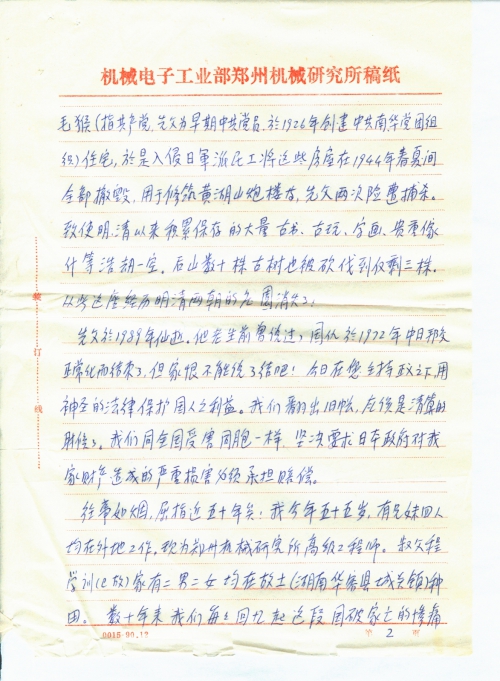 机械电子工业部郑州机械研究所稿纸
毛猴(指共产党,先父为早期中共党员,於1926年创建中共南华党团组
组)住宅,於是入侵日軍派民工将这些房屋在1944年春夏间
全部撤毁,用于修筑黄湖山炮楼店,先父两次险遭捕杀。
致使明、清以来积累保存的大量古书、古玩、字画、贵重傢
什等浩劫一空。后山数十株古树也被砍伐到仅剩三株。
从此这座经历明清两朝的名园消失了。
先父於1989年仙逝。他老生前曾说过,国仇於1972年中日邦交
正常化而结束了,但家恨不能说了结吧!今日在您主持正义之下,用
神圣的法律保护国人之利益。我们翻出旧帐,应该是清算的
时候了。我们同全国受害同胞一样,坚决要求日本政府对我
家财产造成的严重损害必须承担赔偿。
往事如烟,屈指近五十年矣!我今年五十五岁,有兄妹四人
均在外地工作。现为郑州机械研究所高级工程师。叔父程
学训(已故)家有二男二女均在故土(湖南华容县城关镇)种
田。数十年来我们每每回忆起这段国破家亡的惨痛
装
订
线
0015·90.12
第 2